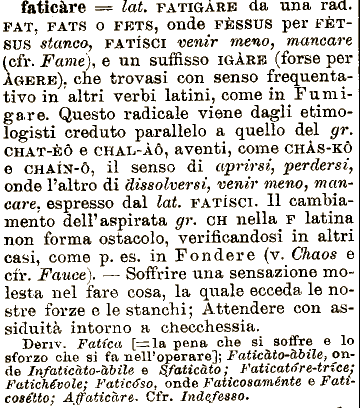 faticàre = lat. FATIGÀRE da una rad.
FAT, FATS o FETS, onde FÈSSUS per FÈT-
SUS stanco, FATÍSCI venir meno, mancare
(cfr. Fame), e un suffisso IGÀRE (forse per
ÀGERE), che trovasi con senso frequenta-
tivo in altri verbi latini, come in Fumi-
gare. Questo radicale viene dagli etimo-
logisti creduto parallelo a quello del gr.
CHAT-ÈÔ e CHAL-ÀÔ, aventi, come CHÀS-KÔ
e CHAÍN-Ô, il senso di aprirsi, perdersi,
onde l'altro di dissolversi, venir meno, man-
care, espresso dal lat. FATÍSCI. Il cambia-
mento dell'aspirata gr. CH nella F latina
non forma ostacolo, verificandosi in altri
casi, come p. es. in Fondere (v. Chaos e
cfr. Fauce). — Soffrire una sensazione mo-
lesta nel fare cosa, la quale ecceda le no-
stre forze e le stanchi; Attendere con as-
siduità intorno a checchessia.
Deriv. Fatíca [=la pena che si soffre e lo
sforzo che si fa nell'operare]; Faticàto-àbile, on-
de Infaticàto-àbile e Sfaticàto; Faticatóre-tríce;
Fatichévole; Faticóso, onde Faticosaménte e Fati-
cosétto; Affaticàre. Cfr. Indefesso.